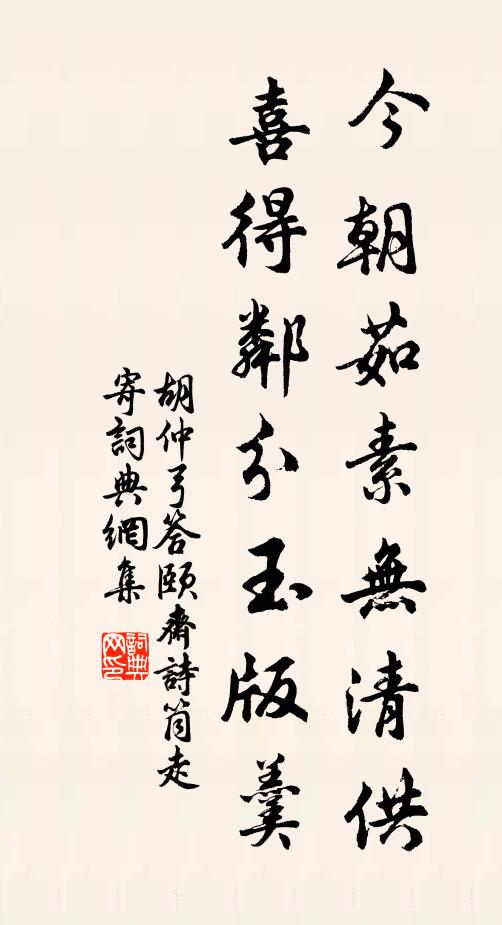 今朝茹素無清供
喜得鄰分玉版羹
胡仲弓答頤齋詩筒走
寄詞典網集
詞典網印